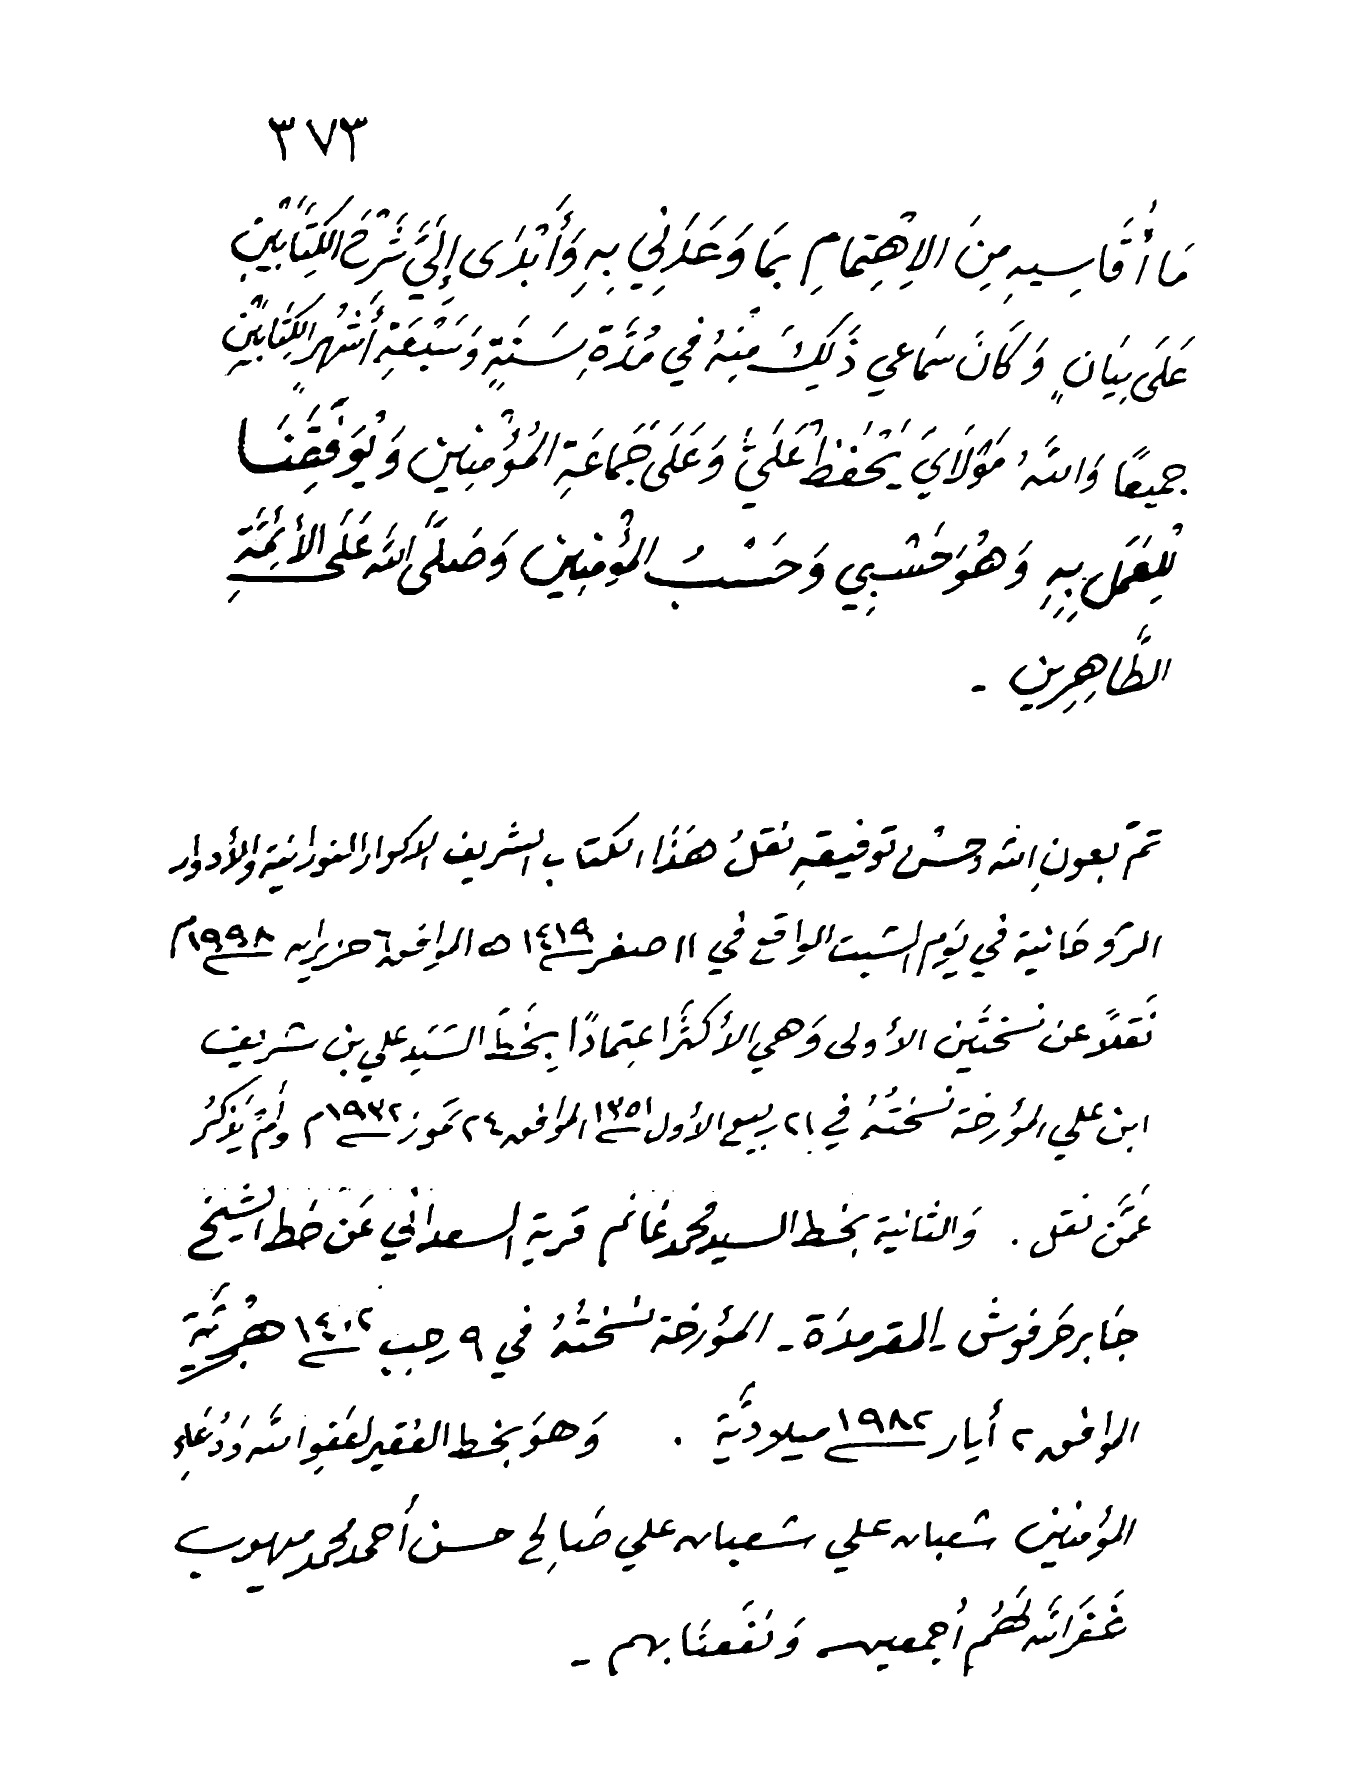 ٣٧٣
مَا أُقَاسِيهِ مِنَ الاِهْتِمَامِ بِمَا وَعَدَنِي بِهِ وَأَبْدَى إِلَيَّ شَرْحَ الكِتَابَيْنِ
عَلَى بَيَانٍ وَكَانَ سَمَاعِي ذَلِكَ مِنْهُ فِي مُدَّةِ سَنَةٍ وَسَبْعَةِ أَشْهُرٍ الكِتَابَيْنِ
جميعًا وَاللَّهُ مَوْلَايَ يَحْفَظُ عَلَيَّ وَعَلَى جَمَاعَةِ المُؤْمِنِين وَيُوَفِّقُنَا
لِلعَمَلِ بِهِ وَهُوَ حَسْبِي وَحَسْبُ المُؤْمِنِين وَصَلَّى اللَّه عَلَى الأَئِمَّةِ
الطَّاهِرِين -
تمّ بعونِ اللَّه وحسْن توفيقهِ نقلُ هَذَا الكتاب الشريف الاكوار النورانية والأدوار
الروحَانية في يَوم السَّبت الواقع في ١١ صفر ١٤١٩ ه الموافق ٦ حزيران ١٩٩٨م
نَقلاً عن نسختَين الأولى وَهي الأكثر اعتمادًا بِخَط السَيَد علي بن شريف
ابن علي المؤرخة نسختُهُ في ٢١ ربيع الأول ١٣٥١ الموافق ٢٤ تموز ١٩٣٢ م ولم يَذكرُ
عَمَّن نقل . وَالثانية بخط السيد محمد غانم قرية السعداني عَن خط الشيخ
جَابر حَرفوش - المقرمدَة - المؤرخة نسْختُهُ في ٩ رجب ١٤٠٢ هجْريَّة
الموافق ٢ أيار ١٩٨٢ ميلاديَّة . وَهوَ بخط الفقير لعَفو اللَّه وَدُعَاءِ
المؤمنين شعبان علي شعبان علي صَالح حسن أحمد محمد ميهوب
غَفَرَ اللَّه لَهُم أجمعين وَنفَعنَا بهم -